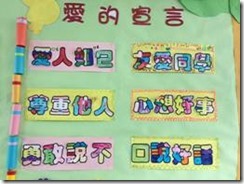 愛的宣言
愛人如己
友愛同學
尊重他人
心想好事
勇敢說不
口說好話